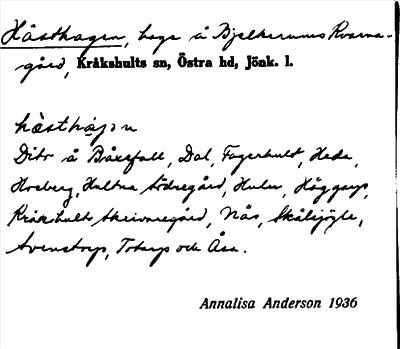 Hästhagen, hage å Bjelkerums Kvarna-
gård, Kråkshults sn, Östra hd, Jönk. l.
hàsthàgən
Dito å Båxefall, Dal, Fagerhult, Heda,
Hosberg, Hultna Södregård, Hulu, Häggarp,
Kråkshults Skrivaregård, Näs, Skälsjögle,
Svenstorp, Totarp och Åsa.
Annalisa Anderson 1936